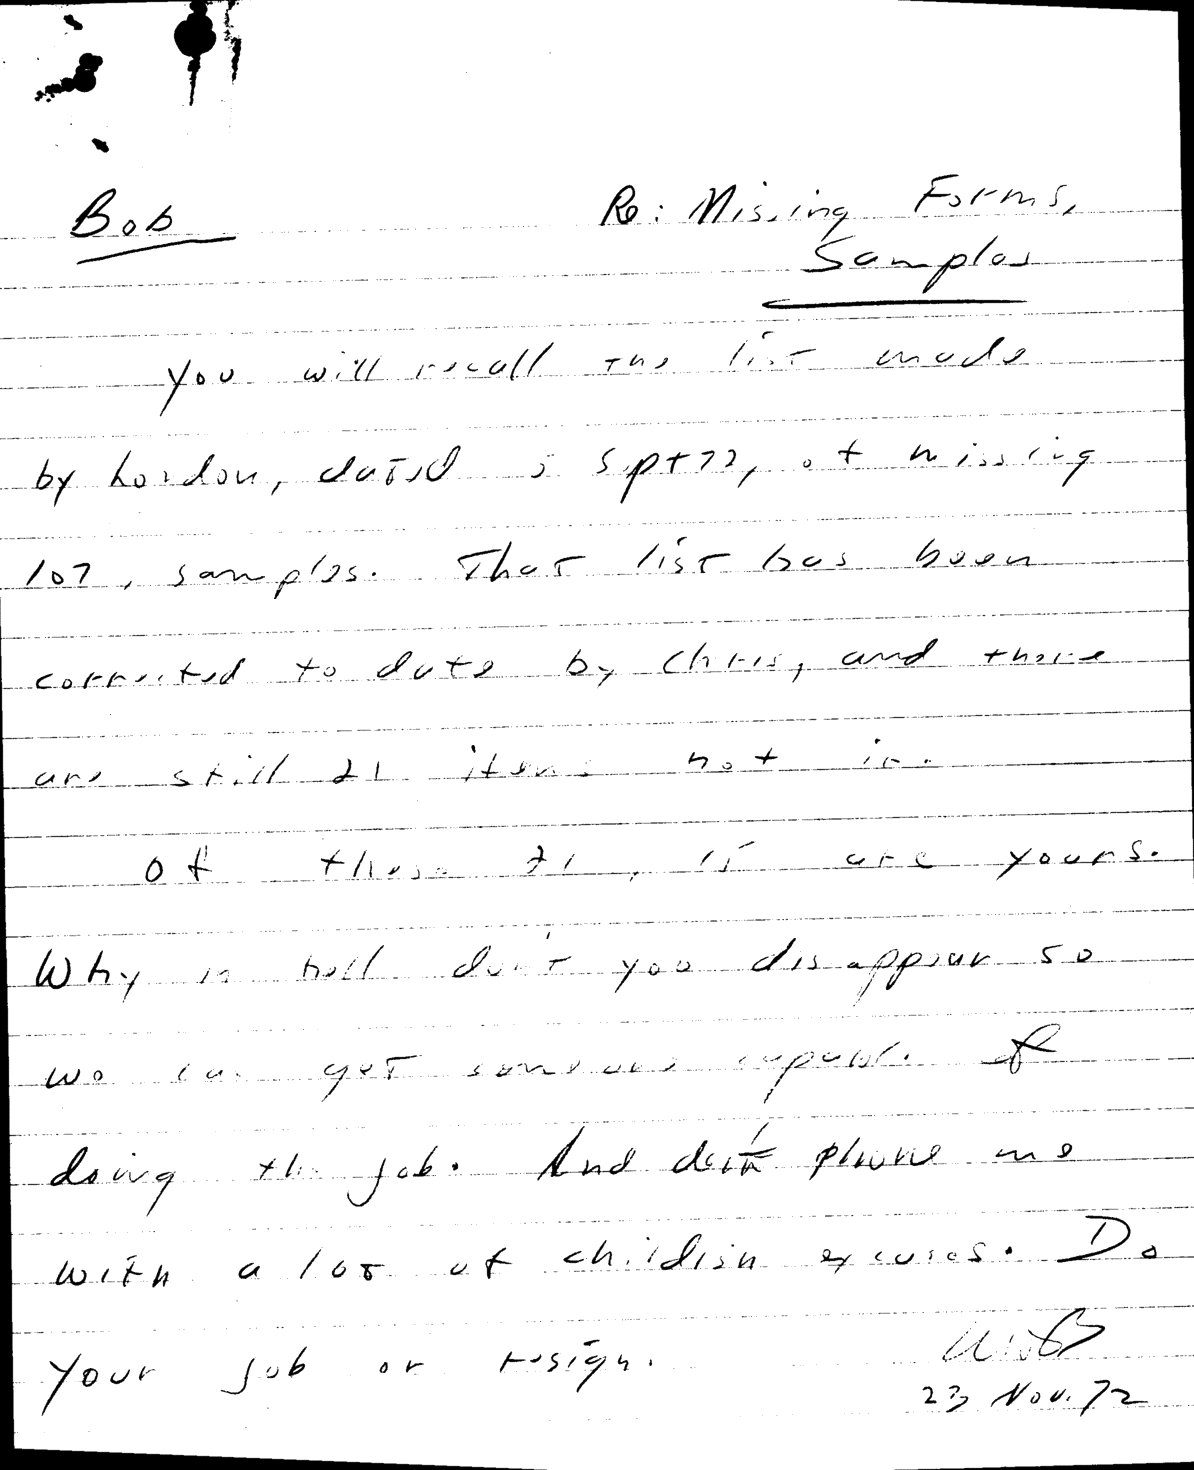 Bob
Re: Missing Forms,
Samples
You will recall the list made
by Lordon, dated 5 Sept 72, of missing
107, samples. That list has been
corrected to date by Chris, and there
are still 21 items not in.
Of these 21, 15 are yours.
Why in hell don't you disappear so
we can get someone capable of
doing the job. And don't phone me
with a lot of childish excuses. Do
your job or resign.
23 Nov. 72